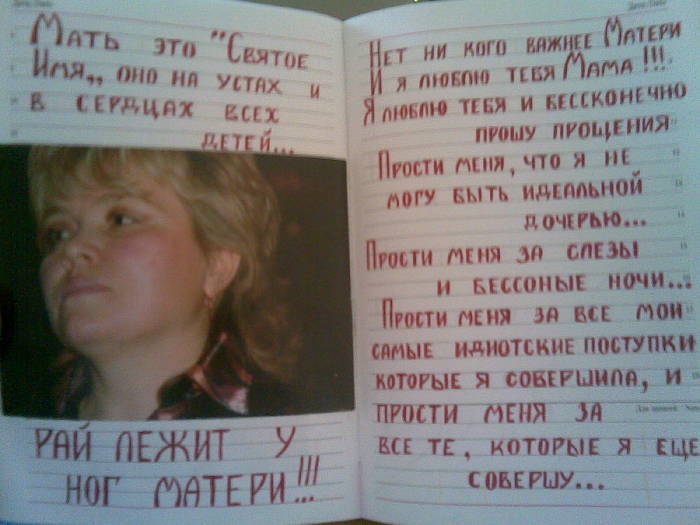 Мать это "Святое
Имя„ оно на устах и
в сердцах всех
детей...
Рай лежит у
ног матери!!!
Нет ни кого важнее Матери
И я люблю тебя Мама!!!
Я люблю тебя и бессконечно
прошу прощения
Прости меня, что я не
могу быть идеальной
дочерью...
Прости меня за слезы
и бессоные ночи...
Прости меня за все мои
самые идиотские поступки
которые я совершила, и
прости меня за
все те, которые я еще
совершу...